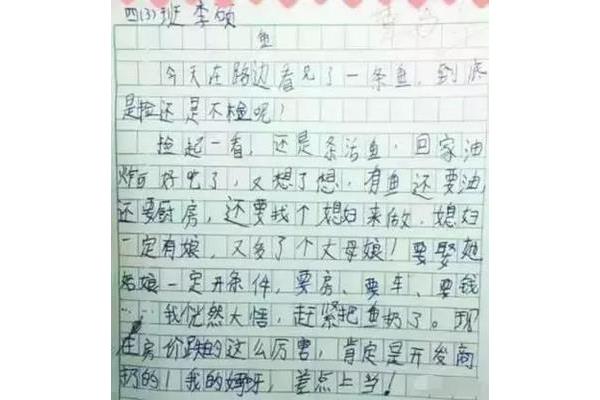 四(3)班 李硕
鱼
今天在路边看见了一条鱼,到底
是捡还是不捡呢!
捡起一看,还是条活鱼,回家油
炸可好吃了,又想了想,有鱼还要油,
还要厨房,还要找个媳妇来做,媳妇
一定有娘,又多了个丈母娘!要娶她
姑娘一定开条件,要房、要车、要钱
……我恍然大悟,赶紧把鱼扔了。现
在房价跌的这么厉害,肯定是开发商
扔的!我的妈呀,差点上当!